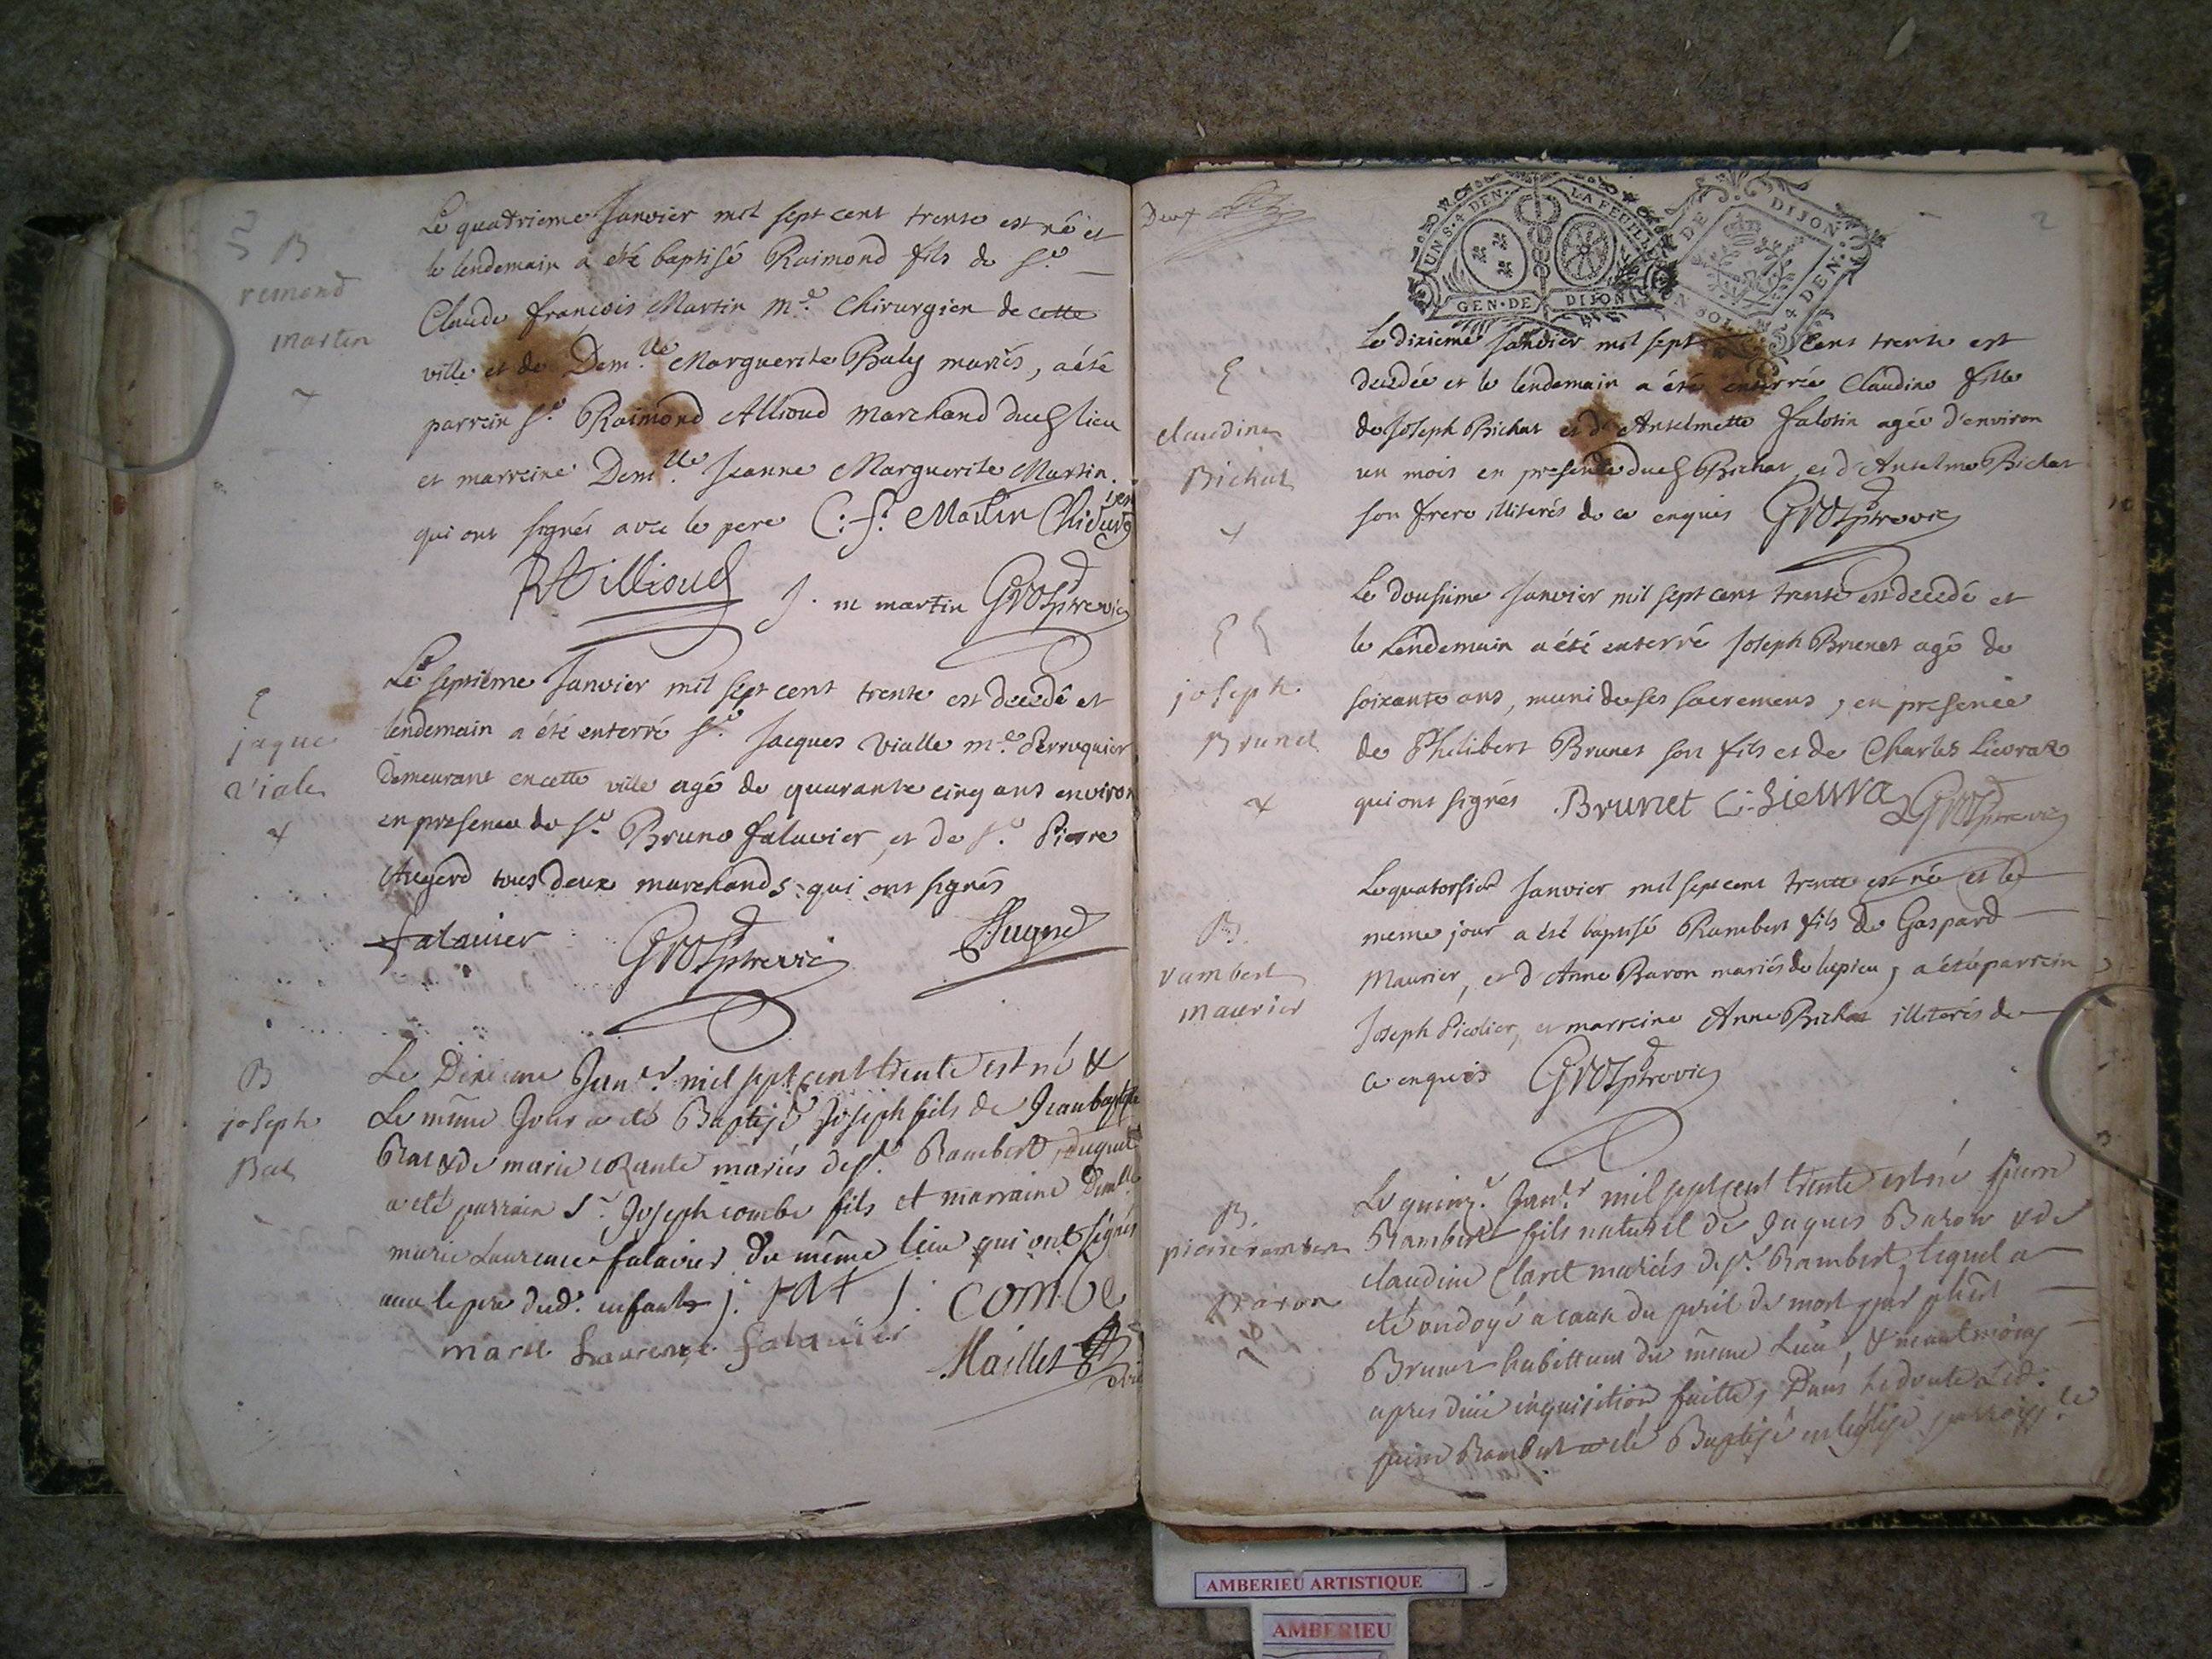 B
remond
martin
Le quatrieme Janvier mil sept cent trente est né et
le lendemain a été baptisé Raimond fils de Sr.
Claude françois Martin Me. Chirurgien de cette
ville et de Demlle. Marguerite Baly mariés, a été
parrein Sr. Raimond Allioud marchand dud lieu
et marreine Demlle. Jeanne Marguerite Martin.
qui ont signés avec le pere C: f: Martin Chirurgien
R Allioud J. m martin Grospierrevic
E
jaque
viale
Le septiême Janvier mil sept cent trente est decedé et
lendemain a été enterré Sr. Jacques Vialle me. Perruquier
Demeurant en cette ville agé de quarante cinq ans environ
en presence de Sr. Bruno falavier, et de Sr. Pierre
Augerd tous deux marchands qui ont signés
falavier
B
joseph
Rat
Le Dixieme Janer. mil sept cent trente est né &
Le même Jour a eté Baptisé Joseph fils de Jean baptiste
Rat & de marie mariés de St. Rambert, duquel
a eté parrain Sr. Joseph combe fils et marraine Demlle
marie Laurence falavier du même lieu qui ont signés
avec le pere dud. enfant j. rat j. combe
marie Laurence falavier
Maillet
Deux
UN S. 4 DEN. LA FEUILLE
GEN. DE DIJON
DE DIJON
2
E
claudine
Bichat
Le dixieme Janvier mil sept cent trente est
decedée et le lendemain a été enterrée Claudine fille
de Joseph Bichat et d'Anselmette falotin agée d'environ
un mois en presence dud Bichat, et d'Anselme Bichat
son frere illiterés de ce enquis
E
joseph
Brunet
Le dousieme Janvier mil sept cent trente est decedé et
le Lendemain a été enterré Joseph Brunet agé de
soixante ans, muni de ses sacremens, en presence
de Philibert Brunet son fils et de Charles Lievraz
qui ont signés Brunet C. Sievra
B.
rambert
maurier
Le quatorsie Janvier mil sept cent trente est né et le
meme jour a été baptisé Rambert fils de Gaspard
Maurier, et d'Anne Baron mariés de lupieu, a été parrein
Joseph Picolier, et marreine Anne Bichat illiterés de
ce enquis
B.
pierre rambert
Baron
Le quinze. Janer. mil sept cent trente est né pierre
Rambert fils naturel de Jaques Baron & de
claudine Claret mariés de St. Rambert, lequel a
eté ondoyé a cause du peril de mort par phert
Brunet habittant du même Lieu, & neantmoins
apres düe inquisition faitte, Dans le doute Led.
pierre Rambert a eté Baptisé en l'église parroissle
AMBERIEU ARTISTIQUE
AMBERIEU